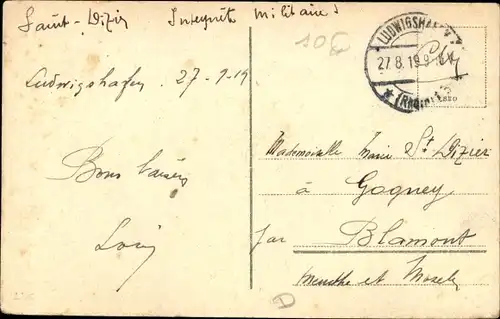 Saint-Dizier Interprète Militaire
10€
LUDWIGSHAFEN
27.8.19.9
(RHEIN)
Ludwigshafen, 27-9-19
Mademoiselle Marie St Dizier
Bons baisers
à Gogney
par Blamont
Meurthe et Moselle
D